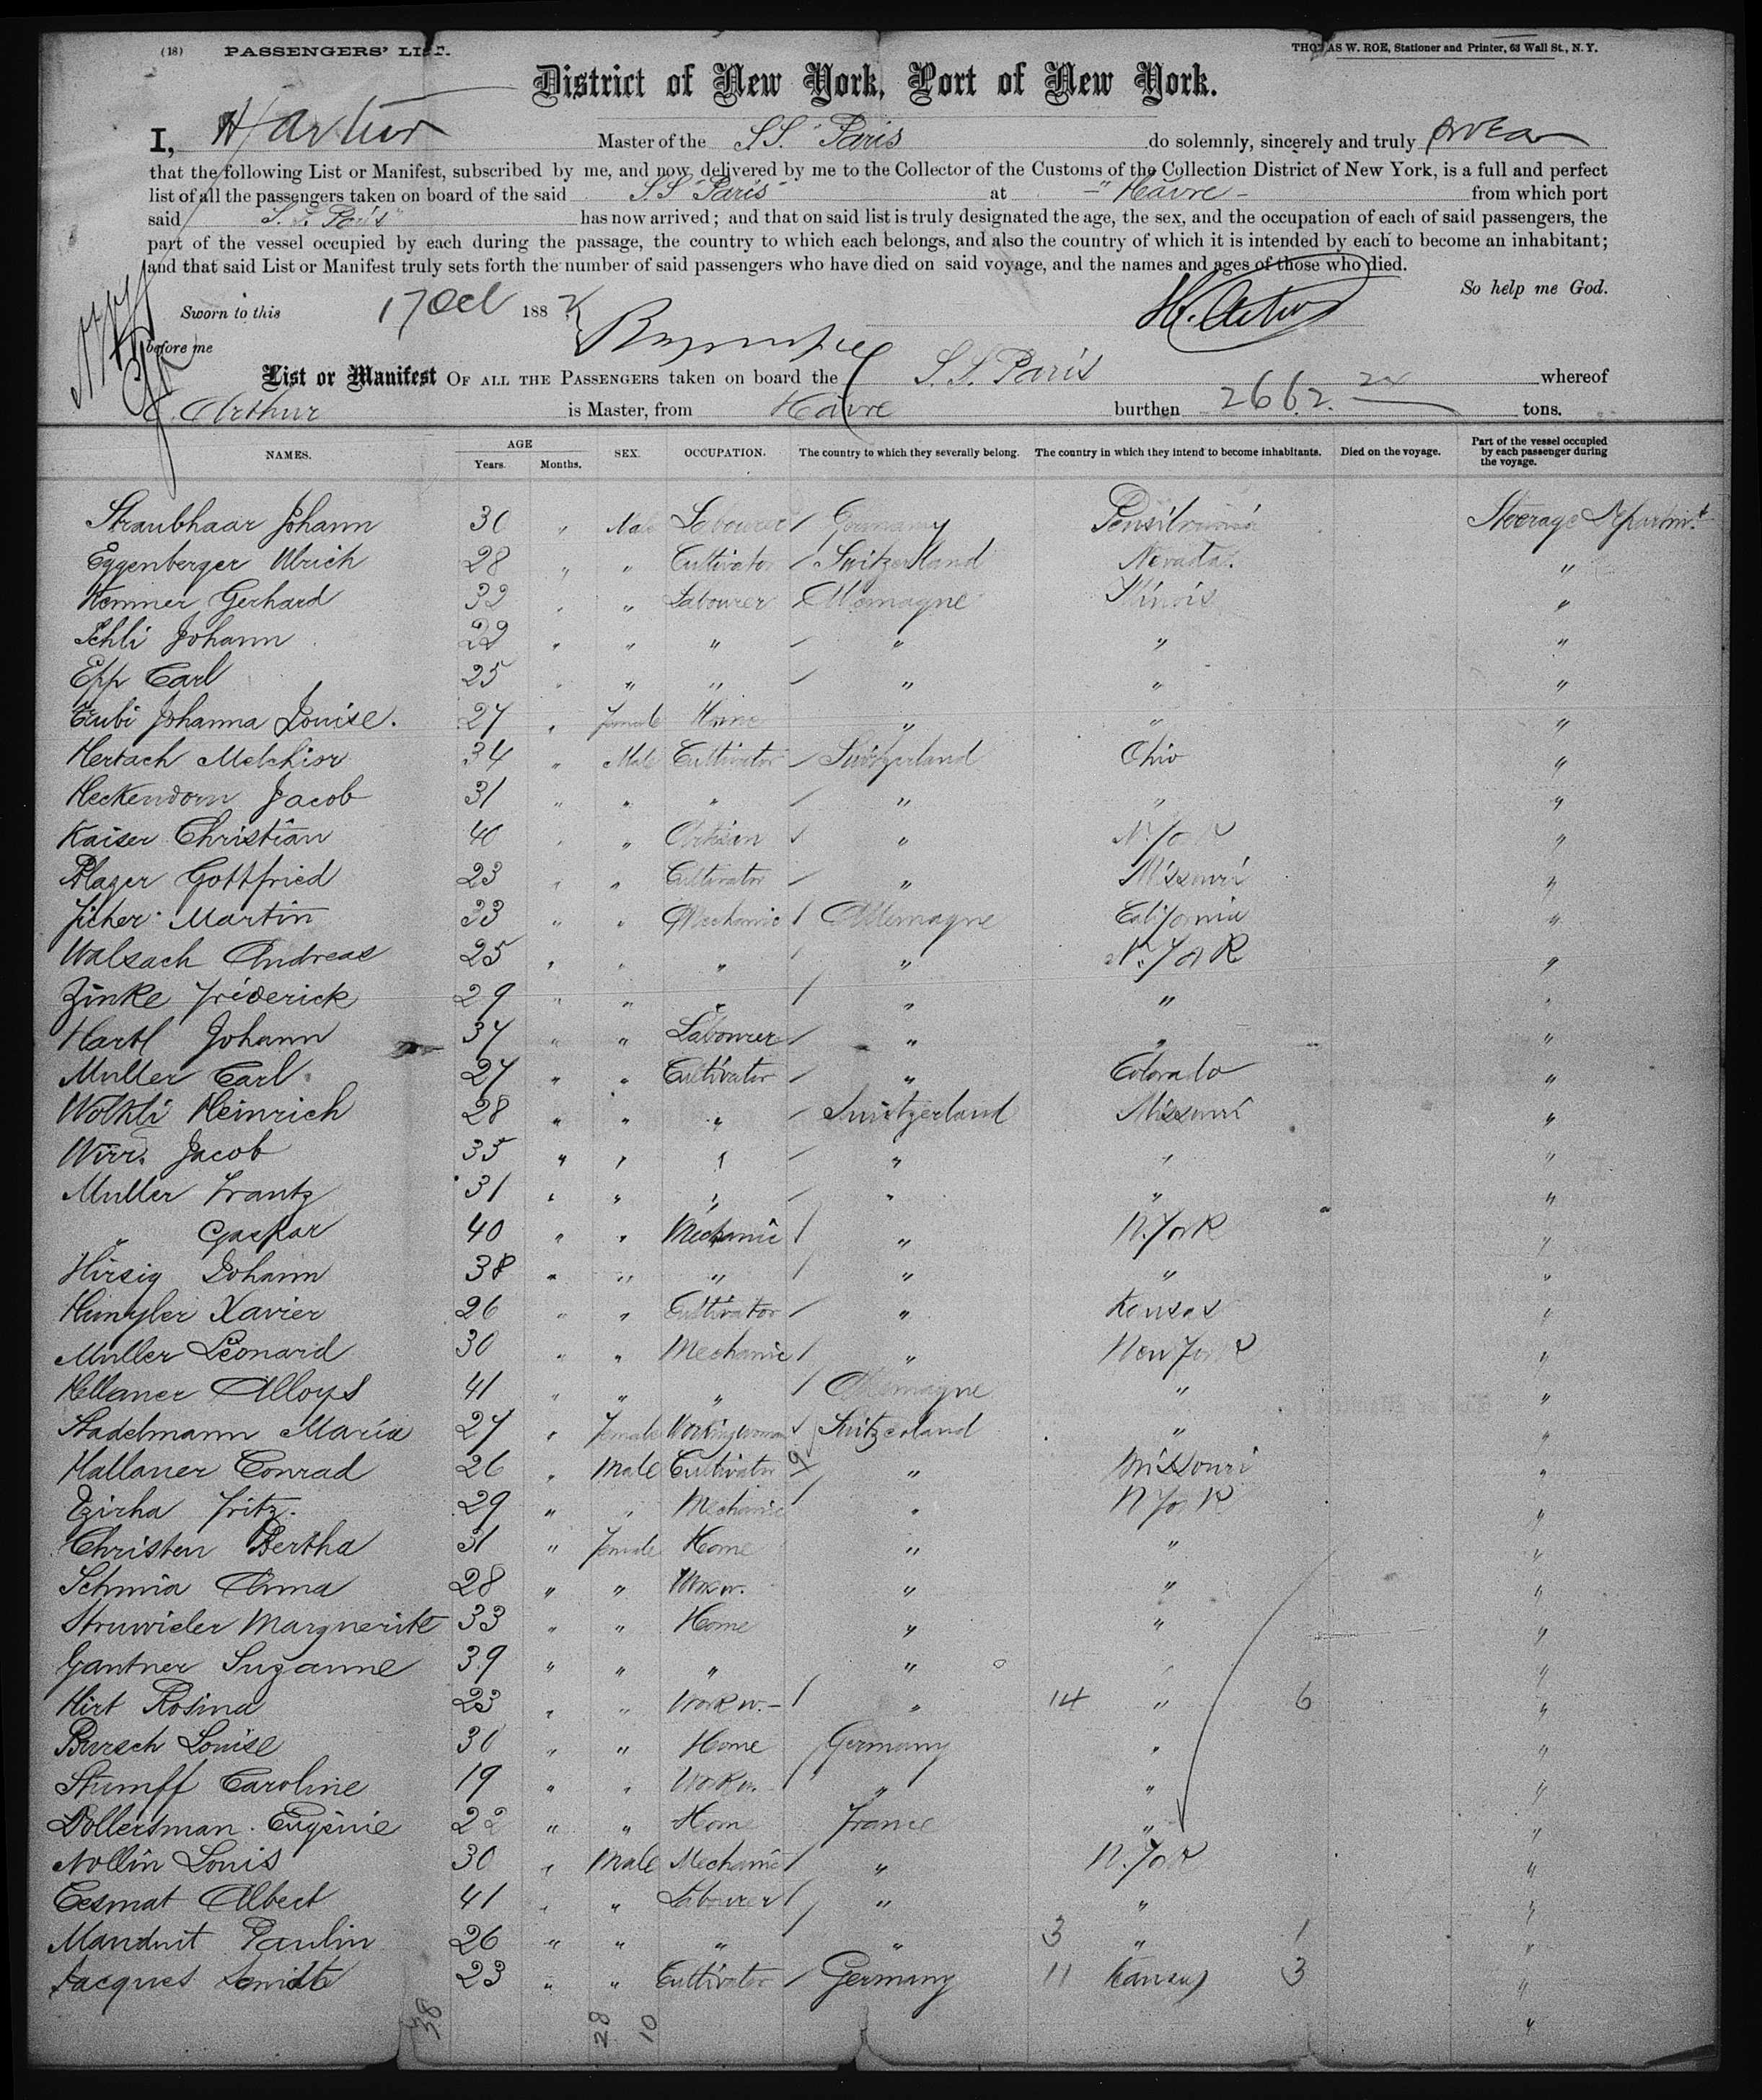 (18) PASSENGERS' LIST.
THOMAS W. ROE, Stationer and Printer, 63 Wall St., N. Y.
District of New York, Port of New York.
I, H Arthur Master of the S.S. Paris do solemnly, sincerely and truly swear
that the following List or Manifest, subscribed by me, and now delivered by me to the Collector of the Customs of the Collection District of New York, is a full and perfect
list of all the passengers taken on board of the said S.S "Paris" at - "Havre - from which port
said S.S. Paris" has now arrived; and that on said list is truly designated the age, the sex, and the occupation of each of said passengers, the
part of the vessel occupied by each during the passage, the country to which each belongs, and also the country of which it is intended by each to become an inhabitant;
and that said List or Manifest truly sets forth the number of said passengers who have died on said voyage, and the names and ages of those who died.
So help me God.
Sworn to this 17 Oct 1882
H. Arthur
before me
List or Manifest OF ALL THE PASSENGERS taken on board the S.S. Paris whereof
Arthur is Master, from Havre burthen 2662. 24 tons.
NAMES. AGE Years. Months. SEX. OCCUPATION. The country to which they severally belong. The country in which they intend to become inhabitants. Died on the voyage. Part of the vessel occupied by each passenger during the voyage.
Straubhaar Johann 30 " Male Labourer / Germany Pensilvania Steerage Departmt
Eggenberger Ulrich 28 " " Cultivator / Switzerland Nevada. "
Kemmer Gerhard 32 " " Labourer / Allemagne Illinois "
Schli Johann 22 " " " / " " "
Epp Carl 25 " " " / " " "
Johanna Louise. 27 " female Home " " "
Hertach Melchior 34 " Male Cultivator / Switzerland Ohio "
Heckendorn Jacob 31 " " " / " " "
Kaiser Christian 40 " " Artisan / " N. York "
Plazer Gottfried 23 " " Cultivator / " Missouri "
Martin 33 " " Mechanic / Allemagne California "
Walsach Andreas 25 " " " / " N. York "
Zinke Friderick 29 " " " / " " "
Hartl Johann 37 " " Labourer / " " "
Muller Carl 27 " " Cultivator / " Colorado "
Wolkli Heinrich 28 " " " / Switzerland Missouri "
Jacob 35 " " " / " " "
Muller Frantz 31 " " " / " " "
" Gaspar 40 " " Mechanic / " N. York "
Hirsig Johann 38 " " " / " " "
Xavier 26 " " Cultivator / " Kansas "
Muller Léonard 30 " " Mechanic / " New York "
Alloys 41 " " " / Allemagne " "
Stadelmann Maria 27 " Female Workingwoman / Switzerland " "
Hallauer Conrad 26 " Male Cultivator " Missouri "
Fritz. 29 " " Mechanic / " N York "
Christen Bertha 31 " female Home " " "
Anna 28 " " Work w. " " "
Struwieler Marguerite 33 " " Home " " "
Gantner Suzanne 39 " " " " " "
Hirt Rosina 23 " " Work w. - / " 14 " 6 "
Bursch Louise 30 " " Home Germany " "
Stumff Caroline 19 " " Work w. / " " "
Dollersman. Eugénie 22 " " Home France " "
Nollin Louis 30 " Male Mechanic / " N. York "
Albert 41 " " Labourer / " " "
Manduit Paulin 26 " " " / " 3 " 1 "
Jacques Smidt 23 " " Cultivator / Germany 11 Kansas 3 "
38 28 10 "